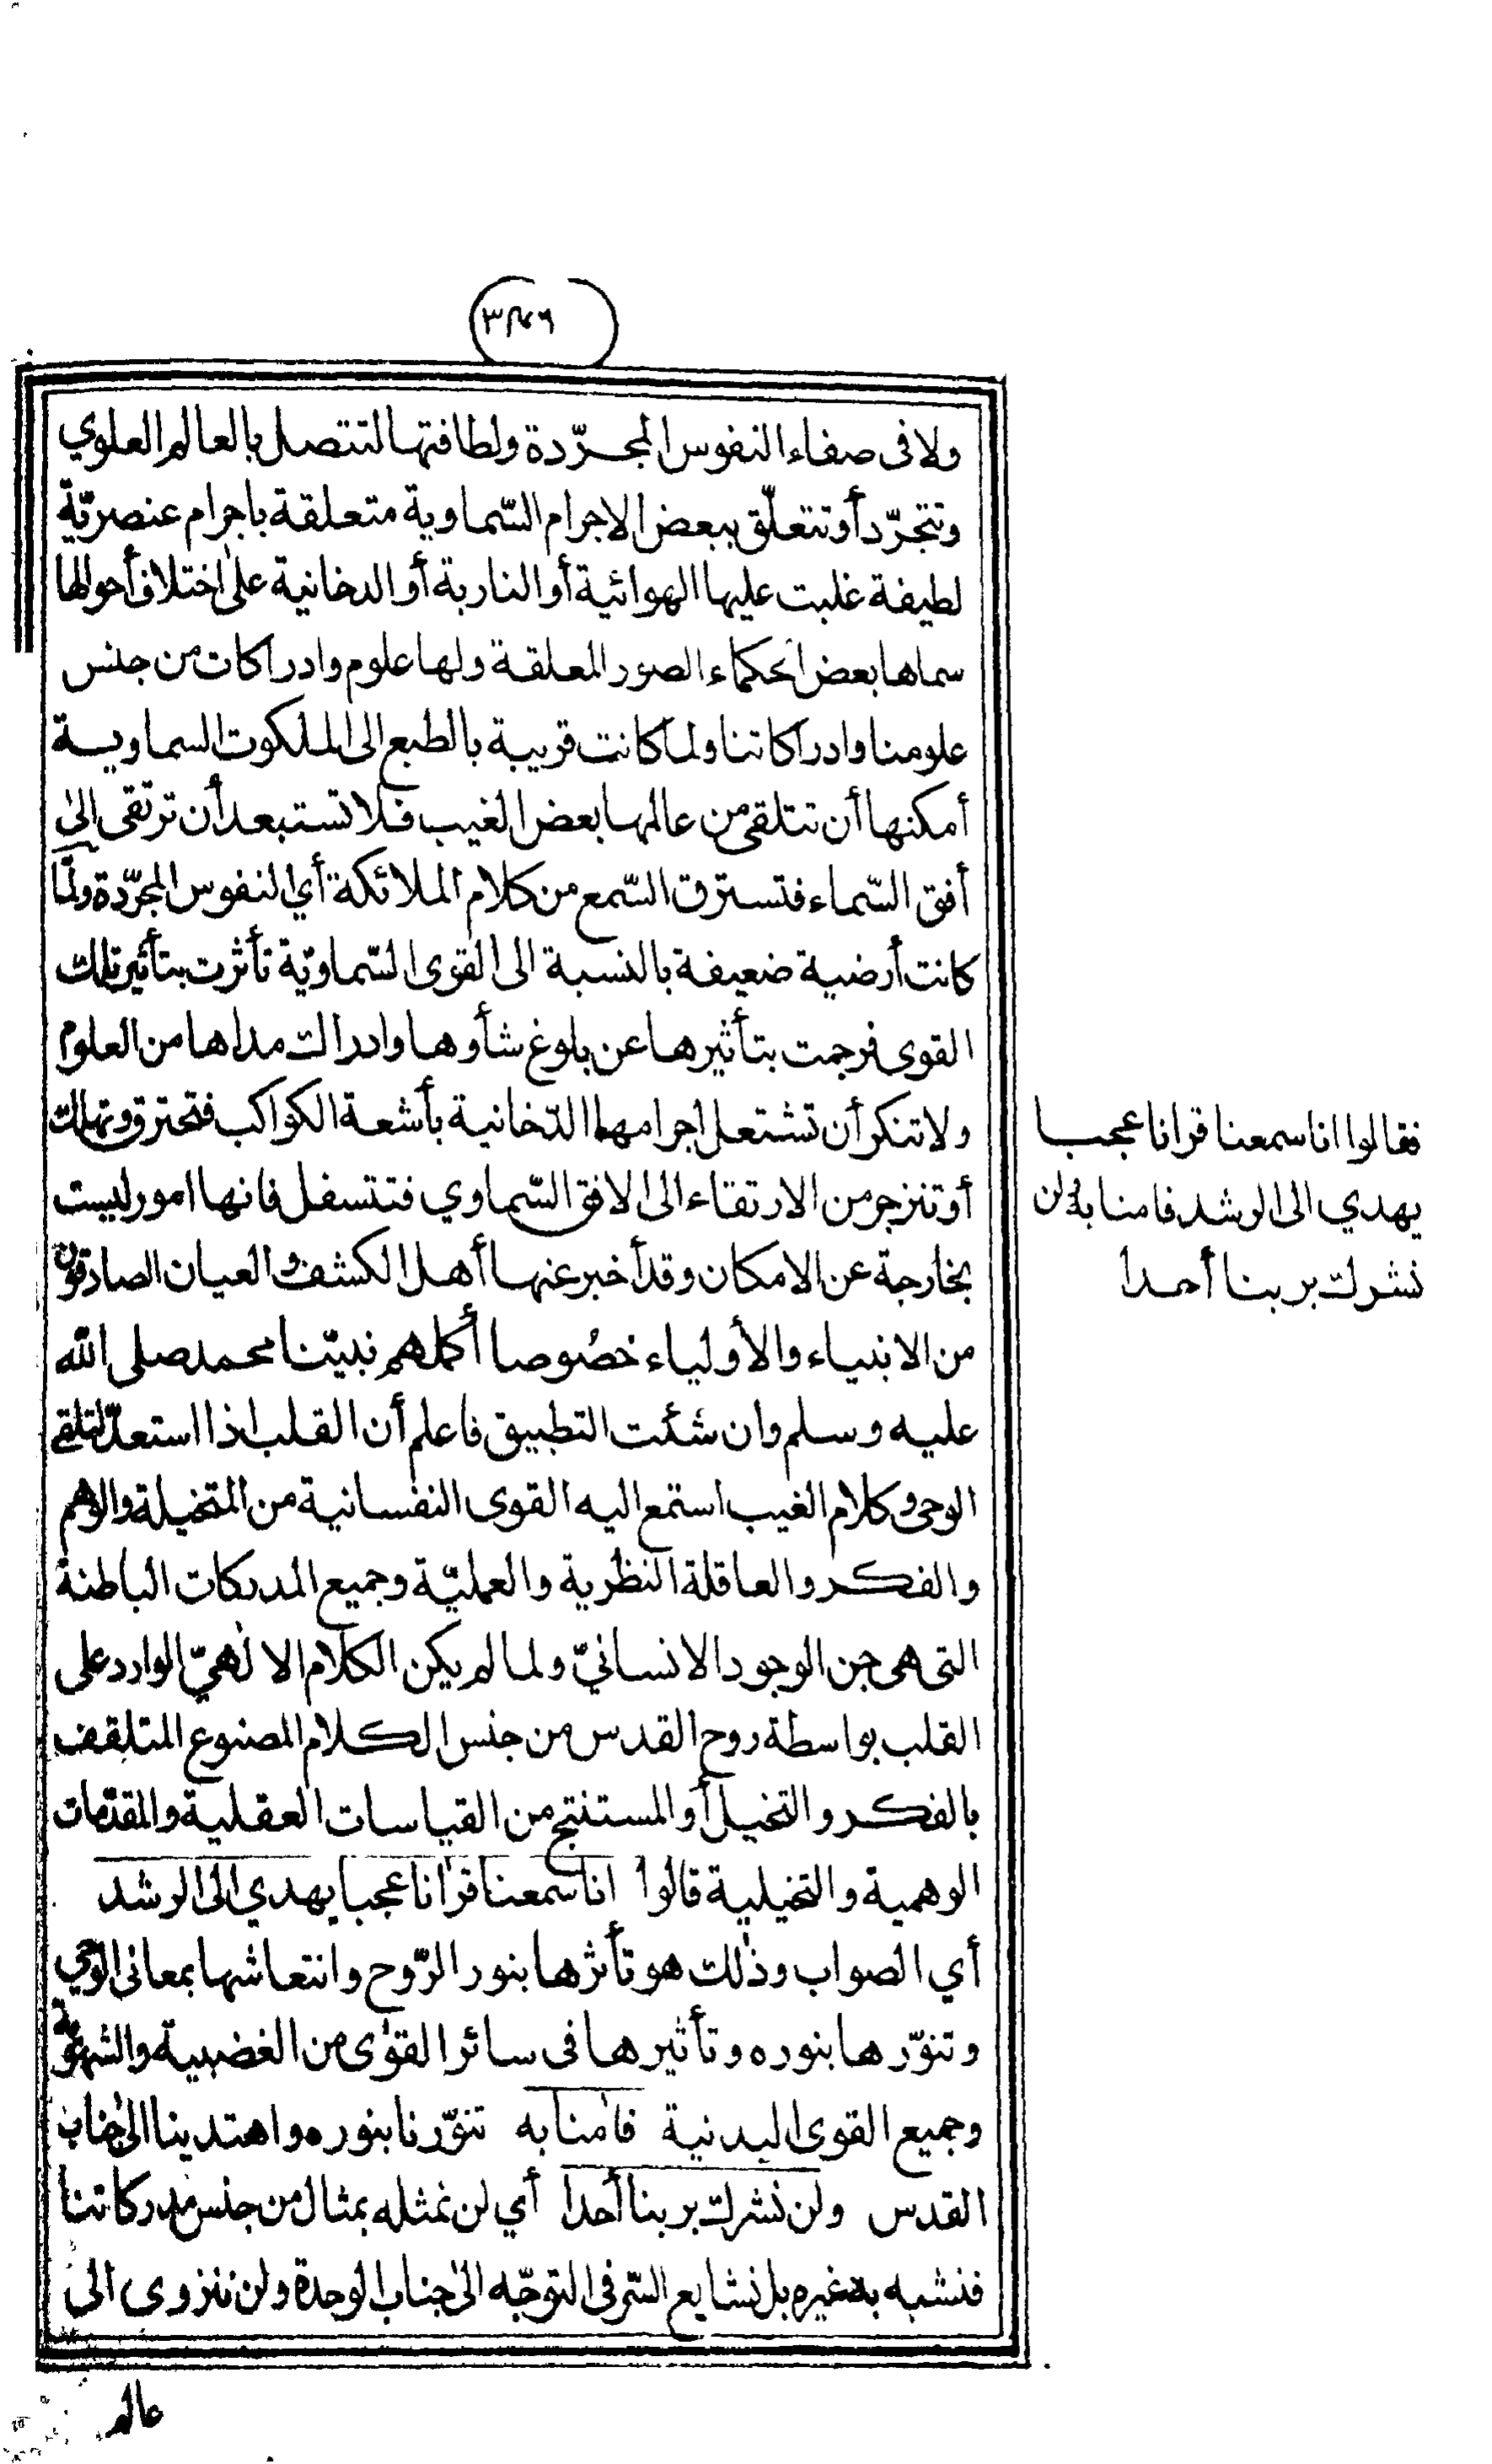 ٣٤٦
ولا فى صفاء النفوس المجرّدة ولطافتها لتتصل بالعالم العلوي
وتتجرّد أو تتعلّق ببعض الاجرام السّماوية متعلقة باجرام عنصريّة
لطيفة غلبت عليها الهوائية أو النارية أو الدخانية على اختلاف أحوالها
سماها بعض الحكماء الصور المعلقة ولها علوم وادراكات من جنس
علومنا وادراكاتنا ولما كانت قريبة بالطبع الى الملكوت السماوية
أمكنها أن تتلقى من عالمها بعض الغيب فلا تستبعد أن ترتقى الى
أفق السّماء فتسترق السّمع من كلام الملائكة أي النفوس المجرّدة ولمّا
كانت أرضية ضعيفة بالنسبة الى القوى السّماويّة تأثرت بتأثير تلك
القوى فرجمت بتأثيرها عن بلوغ شأوها وادراك مداها من العلوم
ولا تنكر أن تشتعل اجرامها الدّخانية بأشعة الكواكب فتحترق وتهلك
أو تنزجر من الارتقاء الى الافق السّماوي فتتسفل فانها امور ليست
بخارجة عن الامكان وقد أخبر عنها أهل الكشف والعيان الصادقون
من الانبياء والأولياء خصُوصا أكملهم نبيّنا محمد صلى الله
عليه وسلم وان شئت التطبيق فاعلم أن القلب اذا استعدّ لتلقى
الوحى وكلام الغيب استمع اليه القوى النفسانية من المتخيلة والوهم
والفكر والعاقلة النظرية والعمليّة وجميع المدركات الباطنة
التى هى جن الوجود الانسانيّ ولما لم يكن الكلام الالٰهيّ الوارد على
القلب بواسطة روح القدس من جنس الكلام المصنوع المتلقف
بالفكر والتخيل أو المستنتج من القياسات العقلية والمقدّمات
الوهمية والتخيلية قالوا انا سمعنا قرانا عجبا يهدي الى الرشد
أي الصواب وذٰلك هو تأثرها بنور الرّوح وانتعاشها بمعانى الوحي
وتنوّرها بنوره وتأثيرها فى سائر القوٰى من الغضبية والشهويّة
وجميع القوى البدنية فاٰمنا به تنوّرنا بنوره واهتدينا الى جناب
القدس ولن نشرك بربنا أحدا أي لن نمثله بمثال من جنس مدركاتنا
فنشبه به غيره بل نشايع السّر فى التوجّه الى جناب الوحدة ولن ننزوى الى
عالم
فقالوا انا سمعنا قرانا عجبا
يهدي الى الرشد فامنا به ولن
نشرك بربنا أحدا